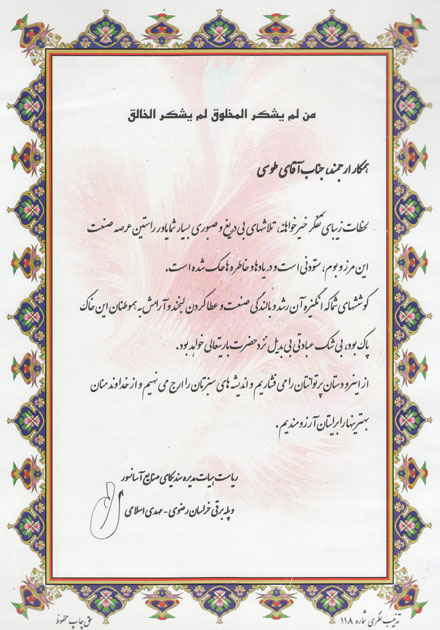 من لم يشكر المخلوق لم يشكر الخالق
همکار ارجمند، جناب آقای طوسی
لحظات زیبای تفکر خیرخواهانه، تلاشهای بی دریغ و صبوری بسیار شما یاور راستین عرصه صنعت
این مرز و بوم، ستودنی است و در یادها و خاطره ها حک شده است.
کوششهای شما که انگیزه آن رشد و بالندگی صنعت و عطا کردن لبخند و آرامش به هموطنان این خاک
پاک بود، بی شک عبادتی بی بدیل نزد حضرت باریتعالی خواهد بود.
از اینرو دستان پرتوانتان را می فشاریم و اندیشه های سبزتان را ارج می نهیم و از خداوند منان
بهترینها را برایتان آرزومندیم.
ریاست هیات مدیره سندیکای صنایع آسانسور
و پله برقی خراسان رضوی - مهدی اسلامی
تذهیب نگری شماره ۱۱۸
حق چاپ محفوظ